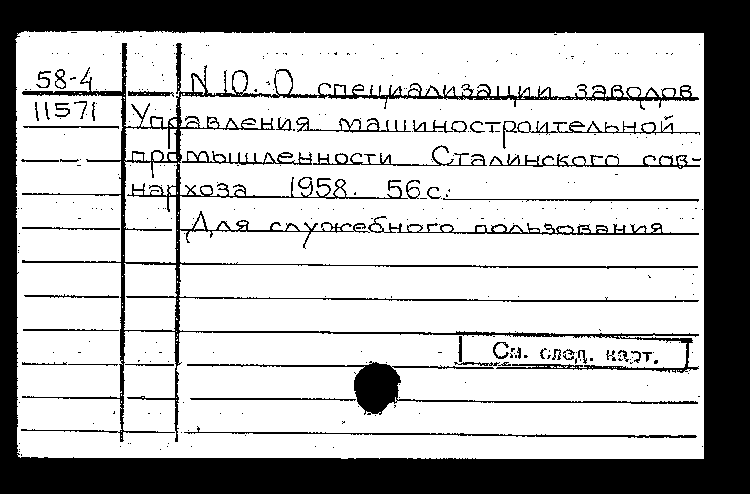 58-4 N 10. О специализации заводов
11571 Управления машиностроительной
промышленности Сталинского сов-
нархоза 1958. 56 с.
Для служебного пользования
См. след. карт.